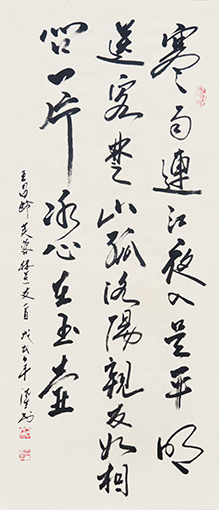 寒雨連江夜入吴平明
送客楚山孤洛陽親友如相
問一片冰心在玉壺
王昌龄芙蓉楼 戊戌年